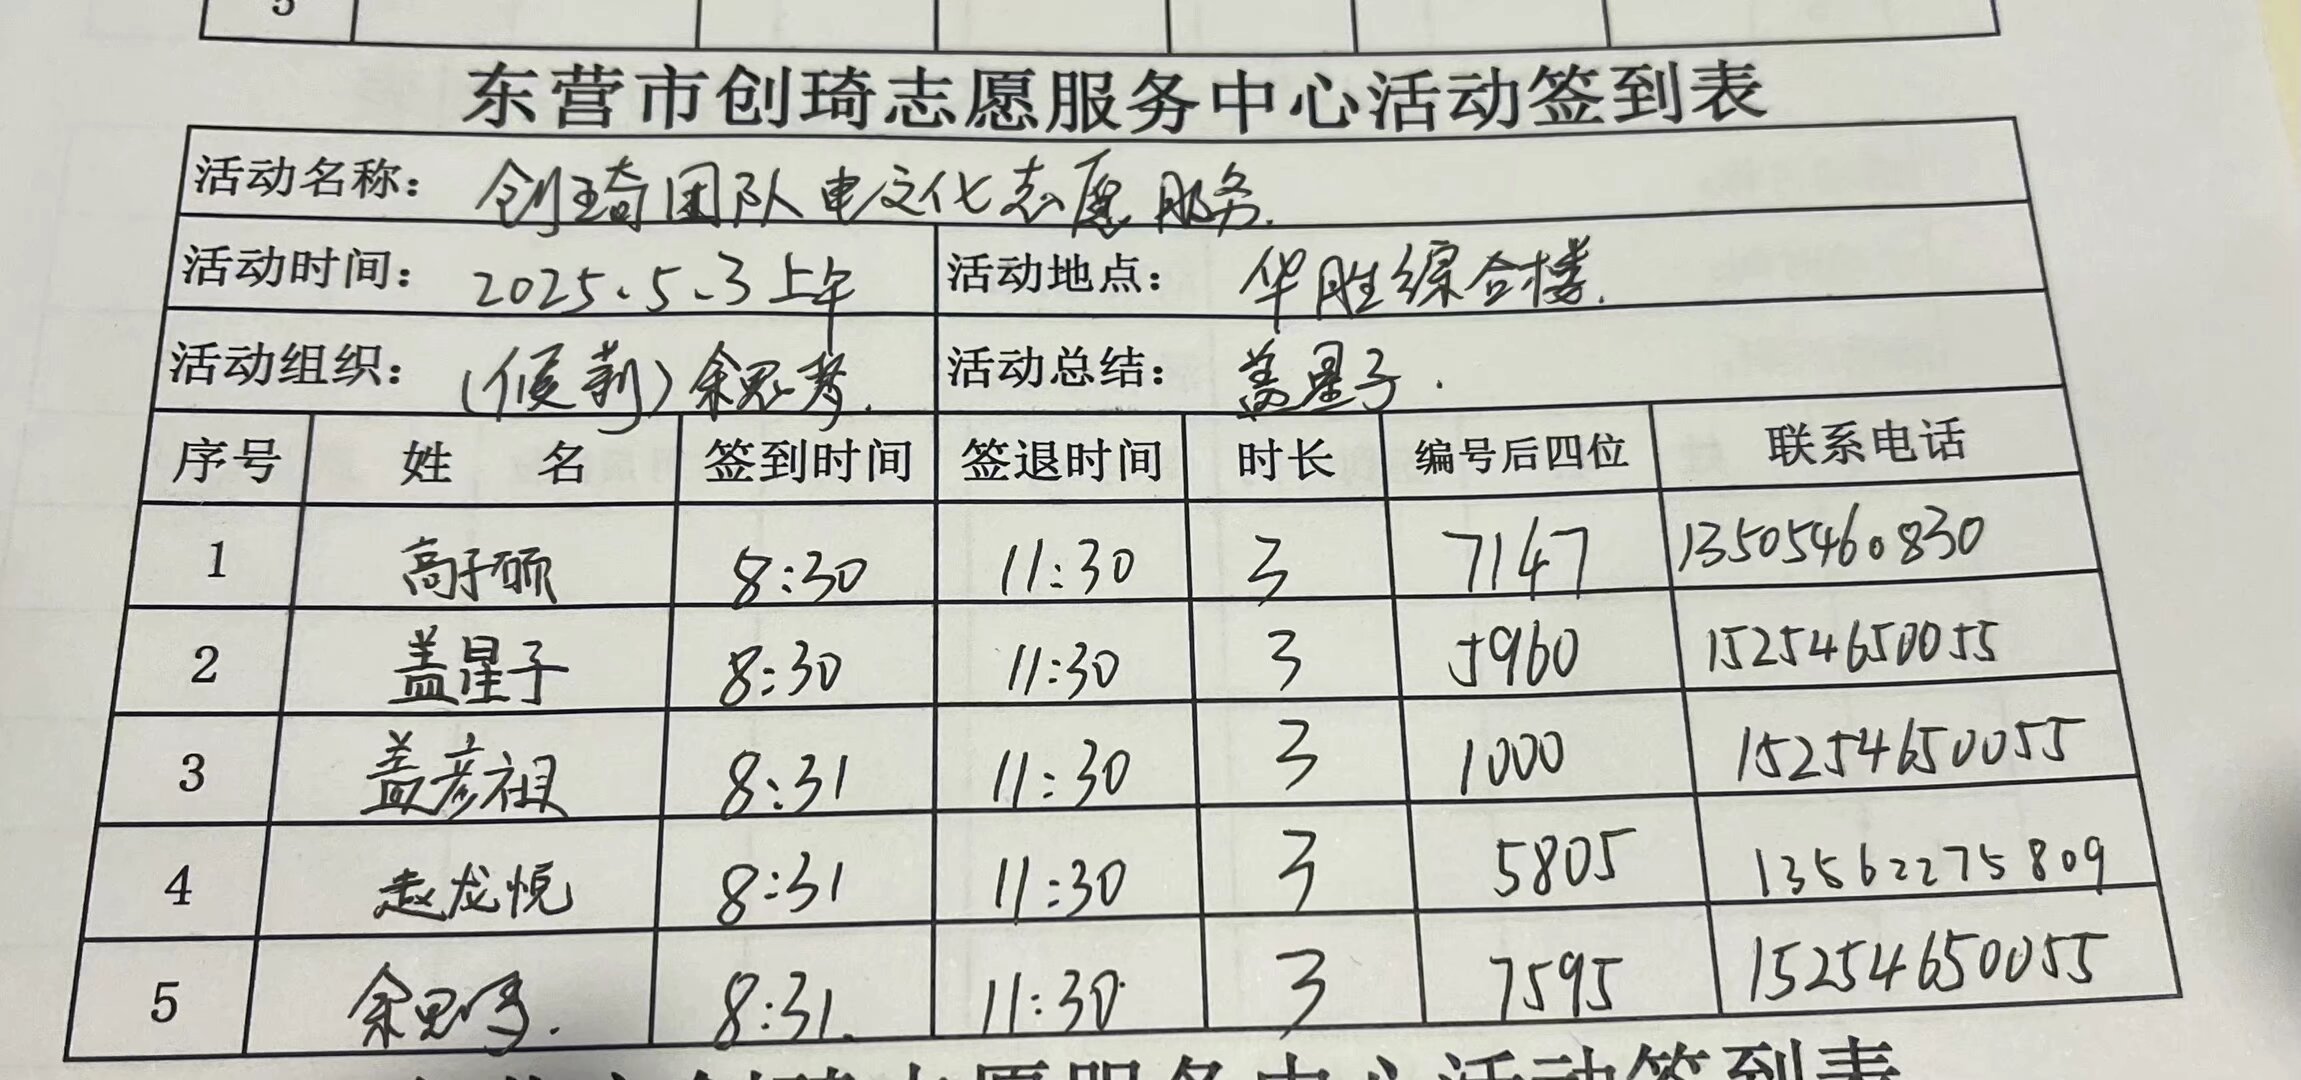 5
东营市创琦志愿服务中心活动签到表
活动名称： 创琦团队电文化志愿服务.
活动时间： 2025.5.3上午 活动地点： 华胜综合楼.
活动组织： (侯莉)余思 活动总结： 盖星子.
序号 姓 名 签到时间 签退时间 时长 编号后四位 联系电话
1 高子硕 8:30 11:30 3 7147 13505460830
2 盖星子 8:30 11:30 3 5960 15254650055
3 盖彦祖 8:31 11:30 3 1000 15254650055
4 赵龙悦 8:31 11:30 3 5805 13562275809
5 余思 8:31. 11:30 3 7595 15254650055
创琦志愿服务中心活动签到表